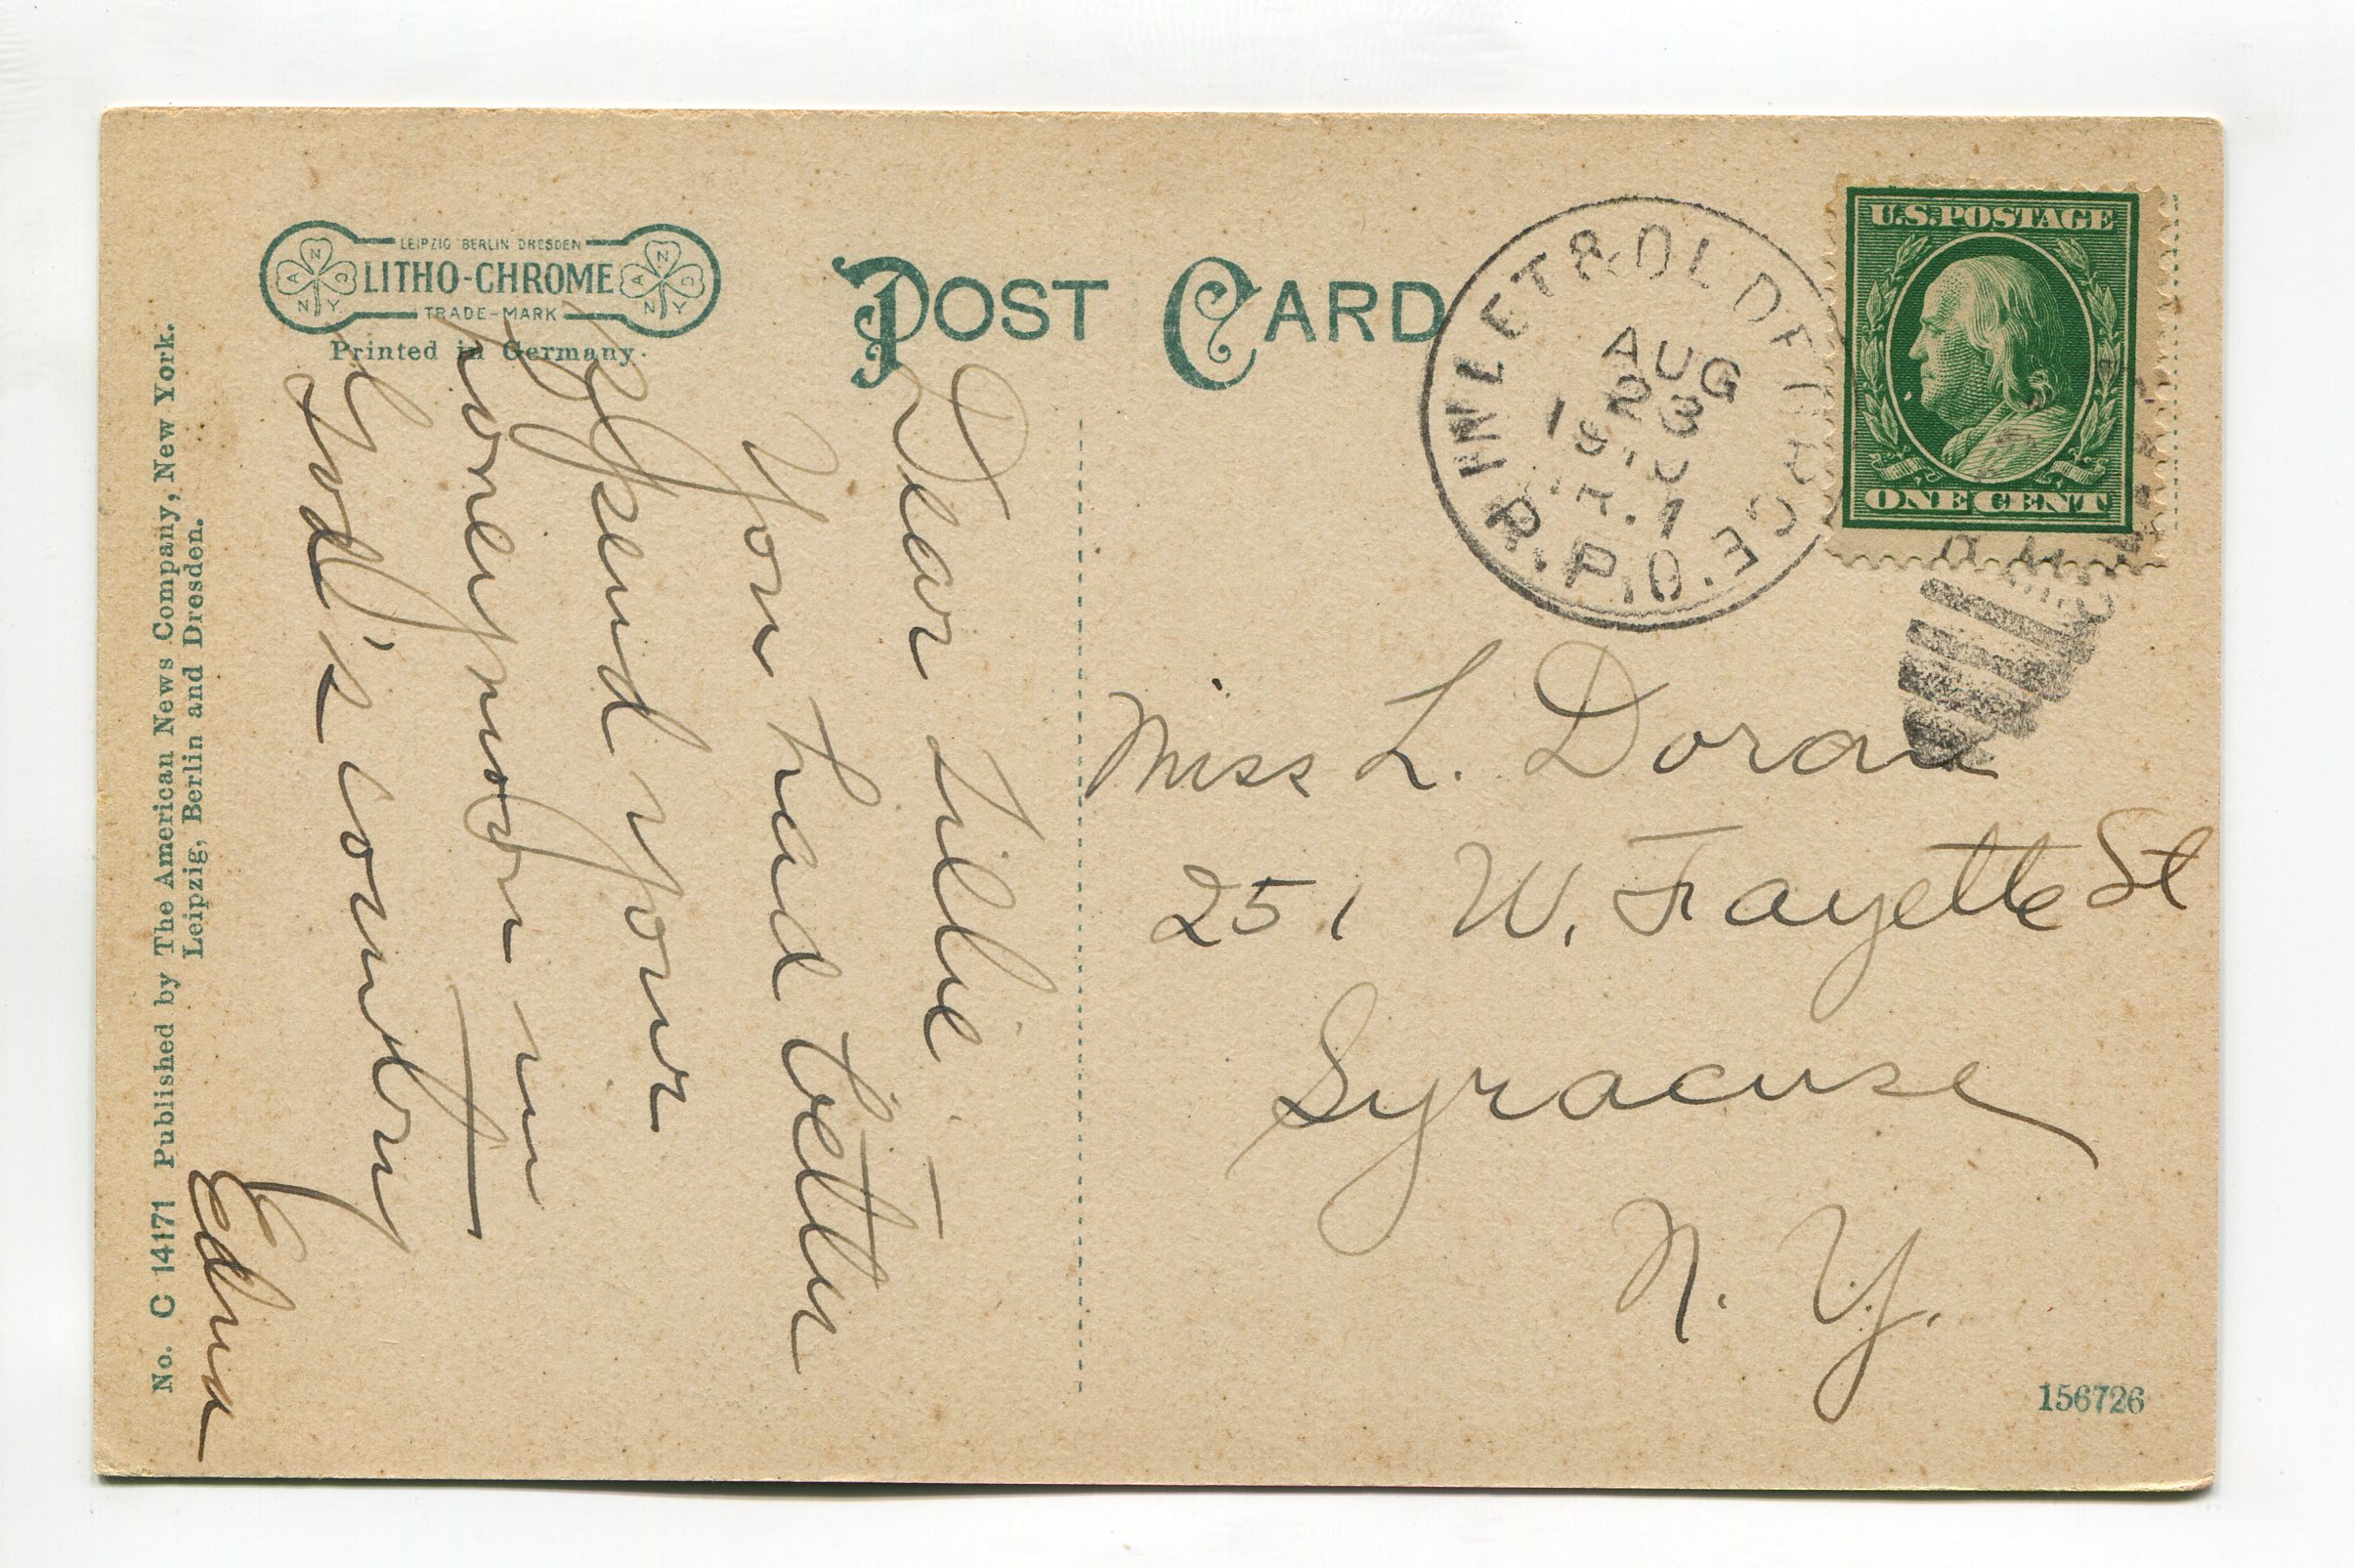 LEIPZIG BERLIN DRESDEN
LITHO-CHROME
TRADE-MARK
Printed in Germany.
POST CARD
No. C 14171 Published by The American News Company, New York.
Leipzig, Berlin and Dresden.
Dear Lillie -
You had better
spend your
honeymoon in
God's country
Edna
INLET & OLD FORGE
R.P.O.
AUG
23
1910
TR. 1
U.S. POSTAGE
ONE CENT
Miss L. Doran
251 W. Fayette St
Syracuse
N. Y.
156726